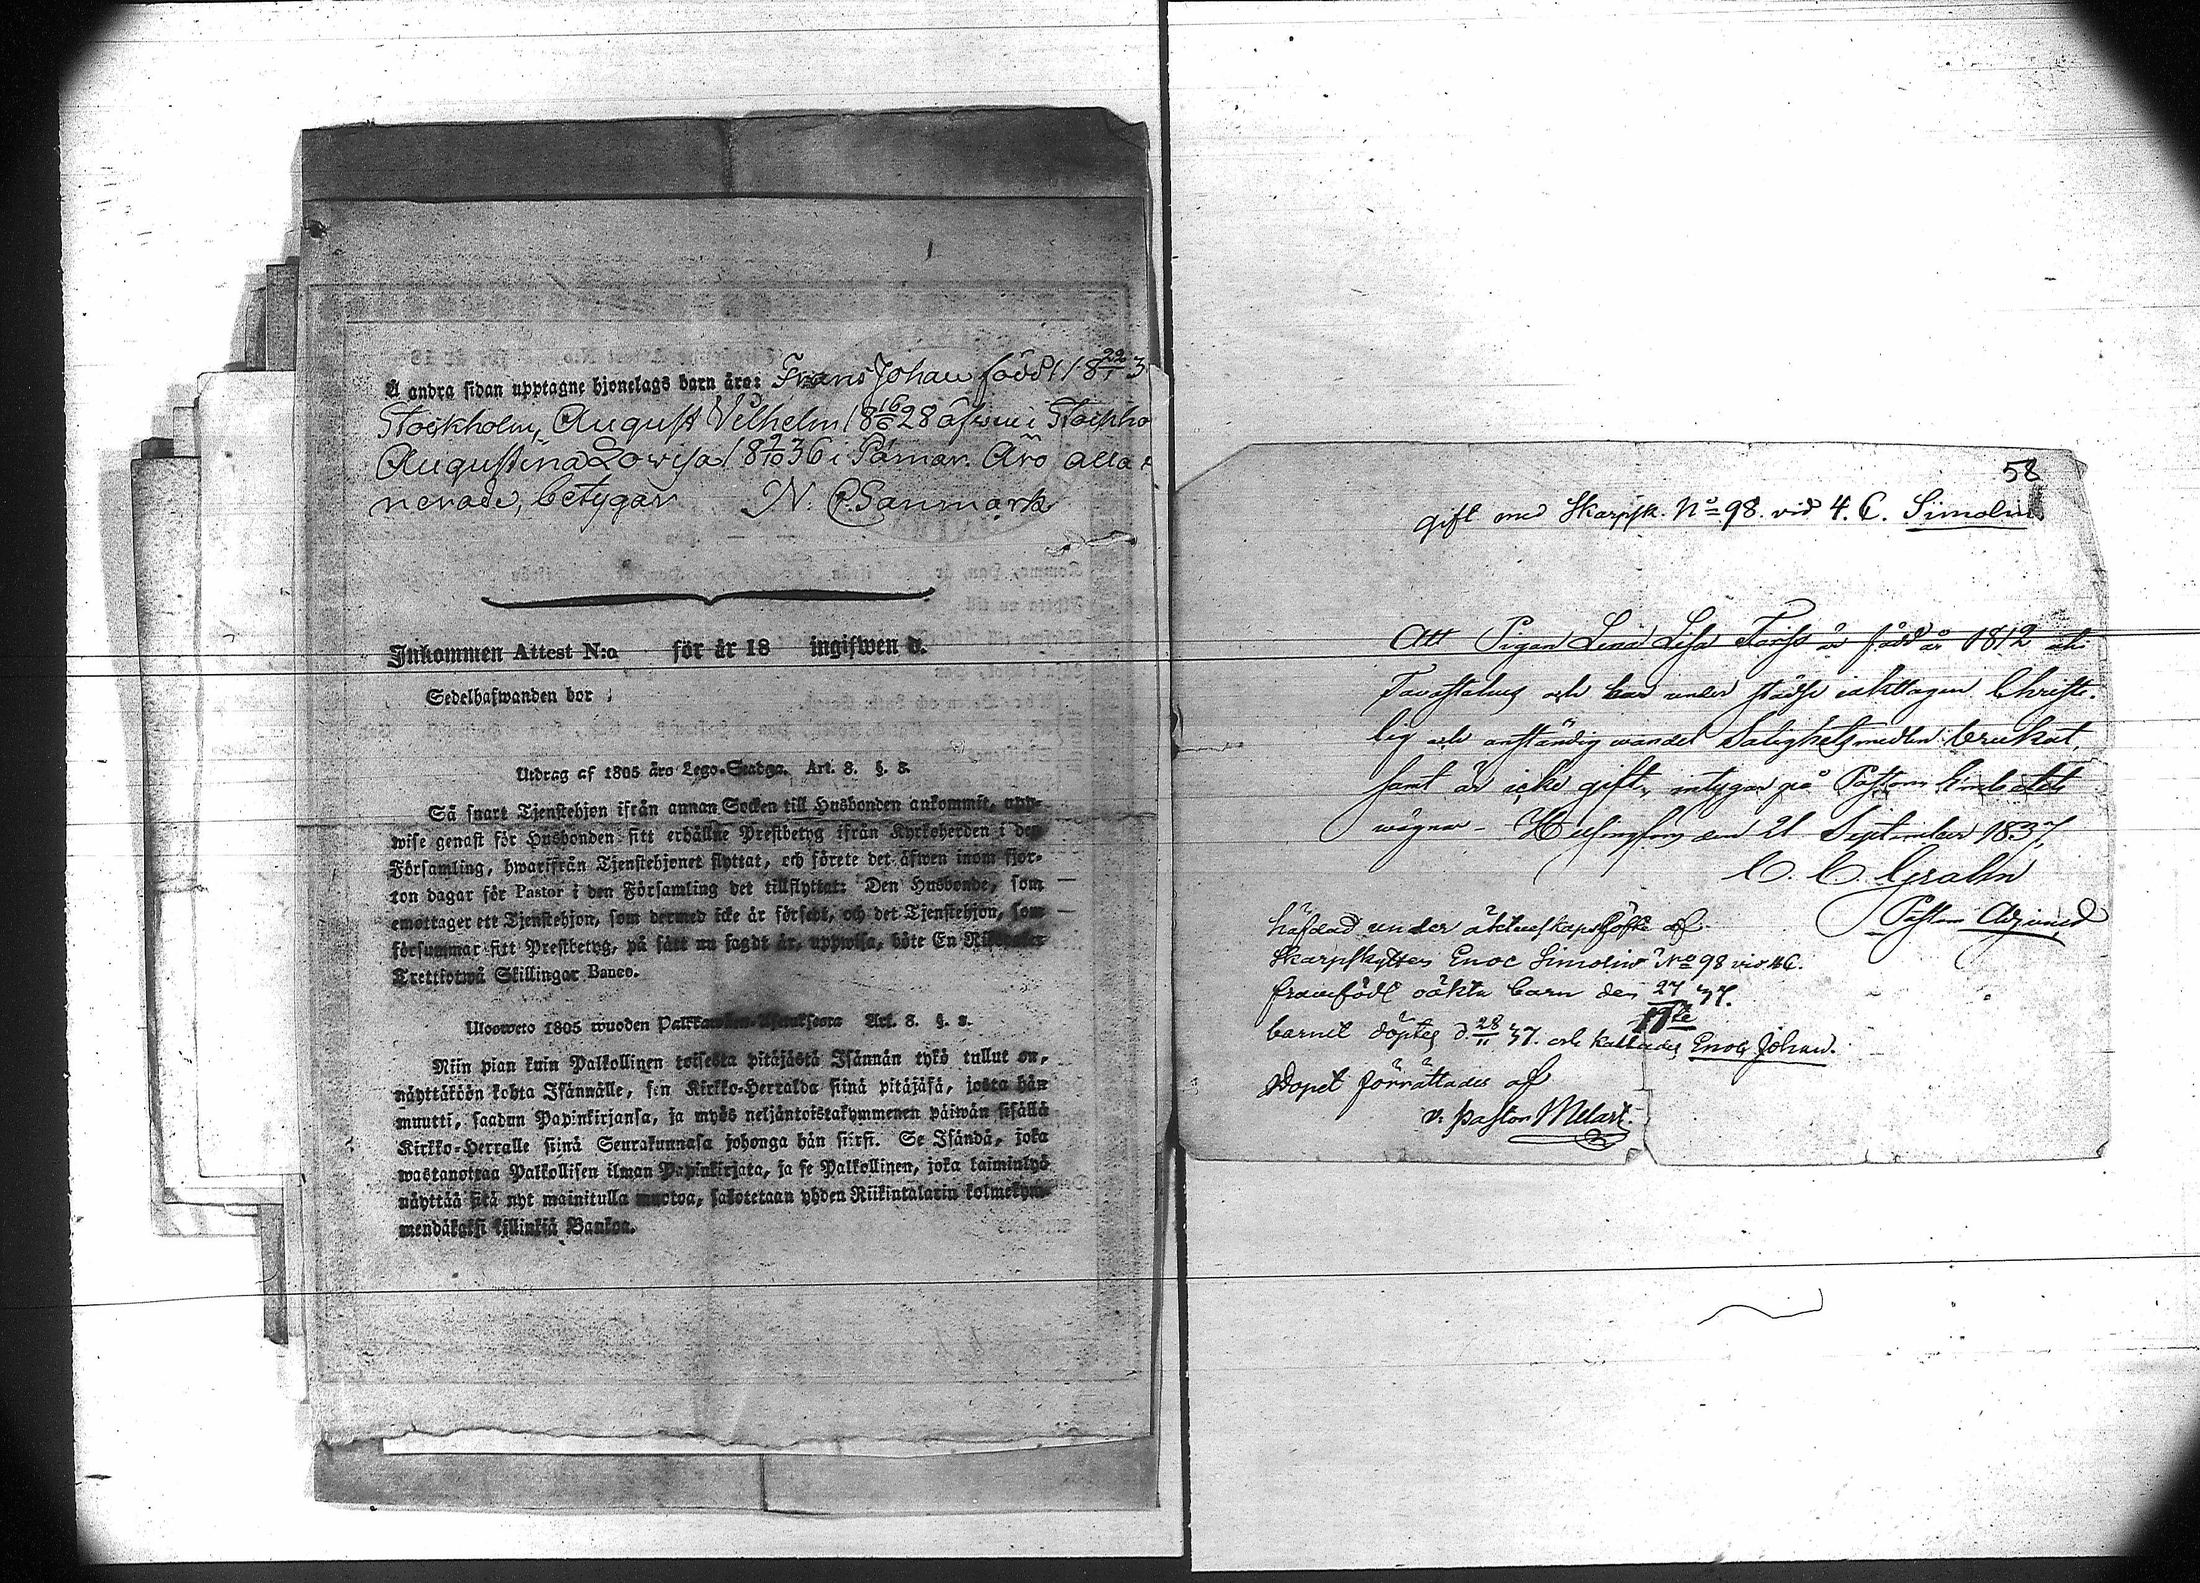 Å andra sidan upptagne hjonelags barn äro: Frans Johan född 18 22/1 3
Stockholm, August Vilhelm 18 16/6 28 äfwen i Stockho
Augustina Lovisa 18 2/10 36 i Pämar. Äro alla
nerade, betygar N. P. Sanmark
Inkommen Attest N:o för år 18 ingifwen d.
Sedelhafwanden bor
Utdrag af 1805 års Lego-Stadga. Art. 8. §. 8.
Så snart Tjenstehjon ifrån annan Socken till Husbonden ankommit, upp-
wise genast för Husbonden sitt erhållne Prestbetyg ifrån Kyrkoherden i den
Församling, hwarifrån Tjenstehjonet flyttat, och förete det äfwen inom fjor-
ton dagar för Pastor i den Församling det tillflyttat: Den Husbonde, som
emottager ett Tjenstehjon, som dermed icke är försedt, och det Tjenstehjon, som
försummar sitt Prestbetyg, på sätt nu sagdt är, uppwisa, böte En Riksdaler
Trettiotwå Skillingar Banco.
Ulosweto 1805 wuoden Art. 8. §. 8.
Niin pian kuin Palkollinen toisesta pitäjästä Isännän tykö tullut on,
näyttäköön kohta Isännälle, sen Kirkko-Herralda siinä pitäjäsä, josta hän
muutti, saadun Papinkirjansa, ja myös neljäntoistakymmenen päiwän sisällä
Kirkko-Herralle siinä Seurakunnasa johonga hän siirsi. Se Isändä, joka
wastanottaa Palkollisen ilman Papinkirjata, ja se Palkollinen, joka laiminlyö
näyttää sitä nyt mainitulla muotoa, sakotetaan yhden Riikintalarin kolmekym-
mendäkaksi killinkiä Bankoa.
58
gift med Skarpsk. No 98. vid 4. C. Simolin
Att Pigan Lena Lisa Forss är född år 1812 uti
Tavastehus och har under städse iakttagen Christe-
lig och anständig wandel Salighetsmedlen brukat,
samt är icke gift, intygar på Pastors Embetets
wägnar - Helsingfors den 21 September 1837,
C. C. Grahn
Pastors Adjunct
häfdad under äktenskapslöfte af
Skarpskytten Enoc Simolin No 98 vid 4 C.
framfödt oäkta barn den 27 37.
barnet döptes d. 28/11 37. och kallades Enoc Johan.
Dopet förrättades af
v. pastor Melart.